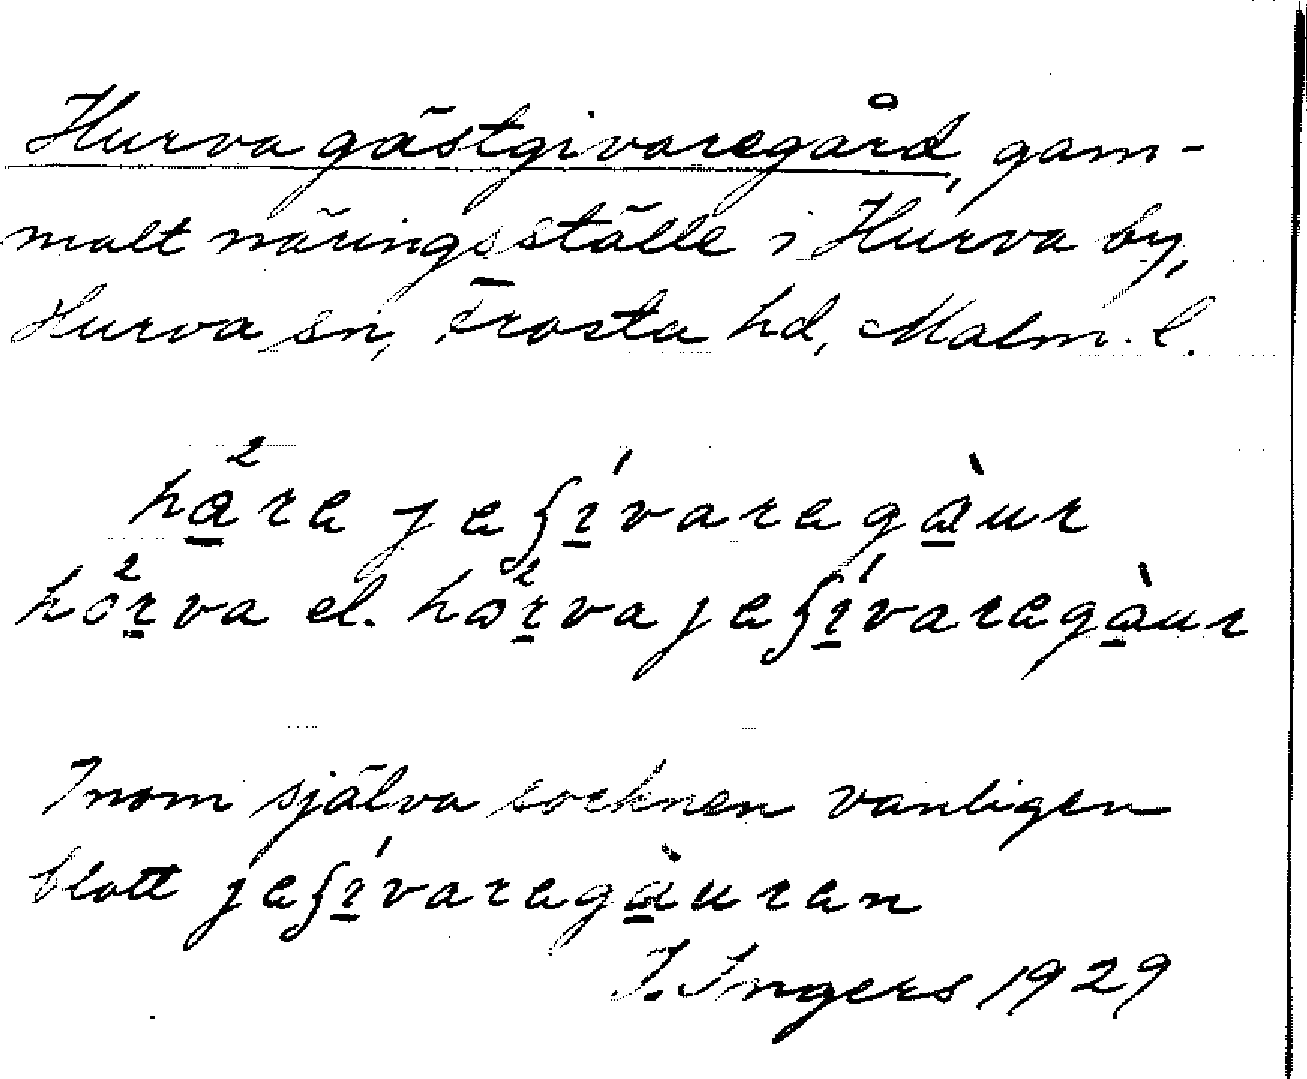 Hurva gästgivaregård, gam-
malt näringsställe i Hurva by,
Hurva sn, Frosta hd, Malm. l.
hä̱²ra jaʃí̱varagà̱ur
höṟ²va el. hɷṟ²va jaʃí̱varagà̱ur
Inom själva socknen vanligen
blott jaʃí̱varagà̱uran
I. Ingers 1929